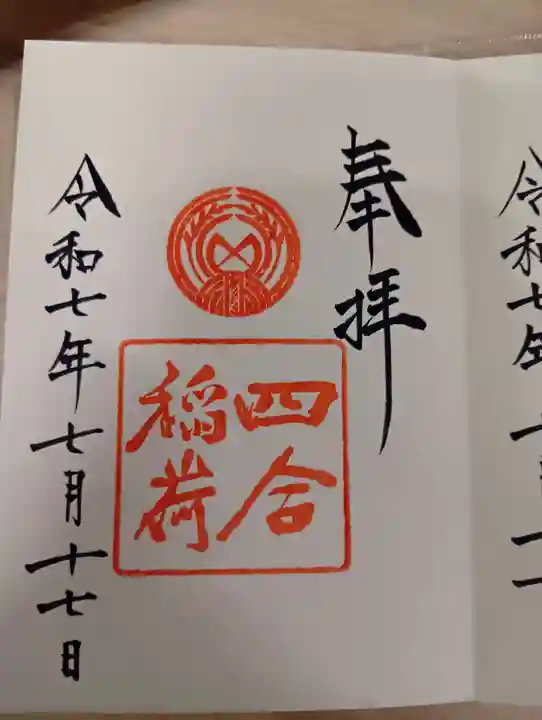 奉拝
四合
稲荷
令和七年七月十七日
令和七年